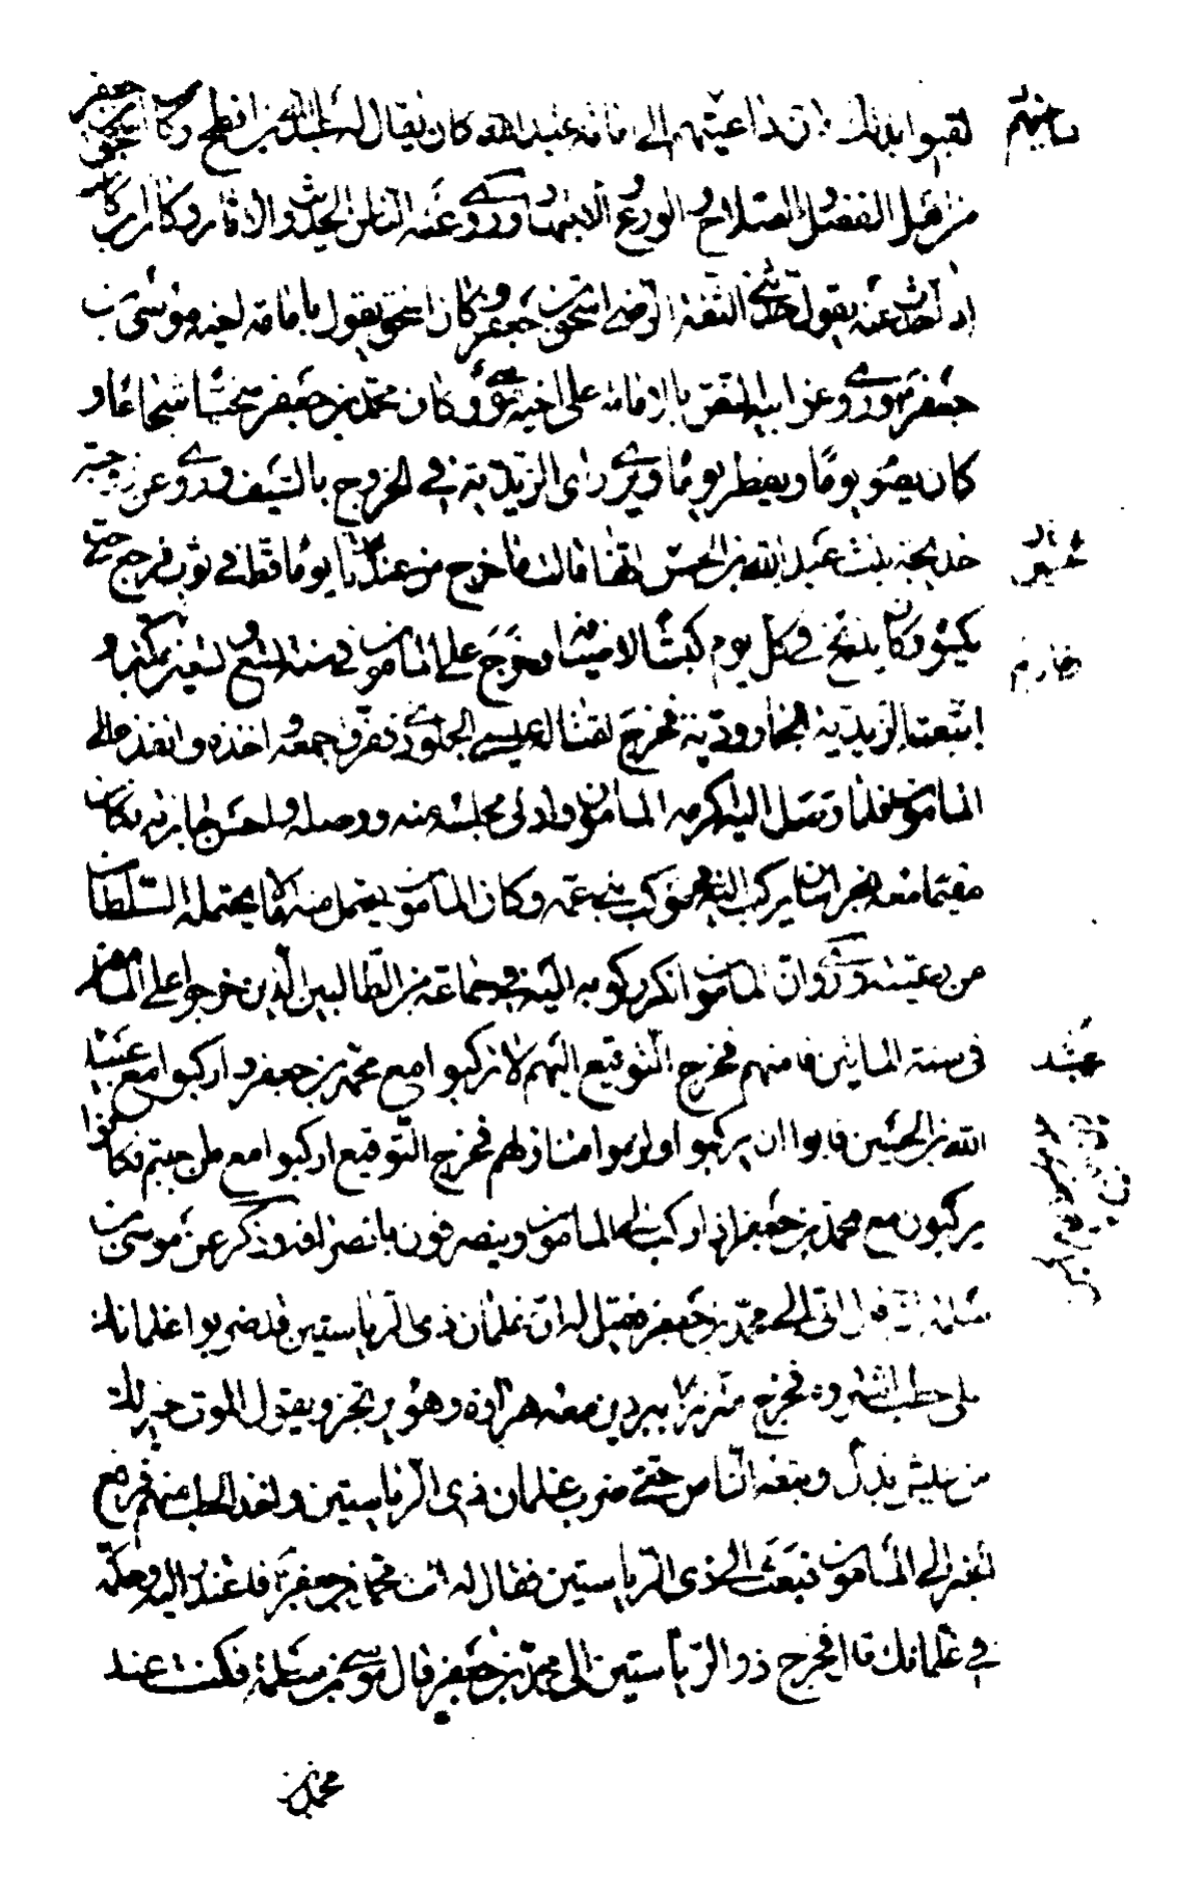 لقبوا بذلك لان داعيتهم الى امامة عبد الله كان يقال له عبد الله بن افطح وكان اسحق بن جعفر
من اهل الفضل والصلاح والورع والاجتهاد وروى عنه الناس الحديث والاثار وكان ابن كاسب
اذا حدث عنه يقول حدثني الثقة الرضى اسحق بن جعفر وكان اسحق يقول بامامة اخيه موسى بن
جعفر وروى عن ابيه النص بالامامة على اخيه موسى وكان محمد بن جعفر سخيا شجاعا و
كان يصوم يوما ويفطر يوما ويرى راى الزيدية في الخروج بالسيف وروى عن زوجته
خديجة بنت عبد الله بن الحسين انها قالت ما خرج من عندنا يوما قط في ثوب فرجع حتى
يكسوه وكان يذبح في كل يوم كبشا لاضيافه وخرج على المامون في سنة تسع وتسعين بمكة و
اتبعته الزيدية الجارودية فخرج لقتاله عيسى الجلودي ففرق جمعه واخذه وانفذه الى
المامون فلما وصل اليه اكرمه المامون وادنى مجلسه منه ووصله واحسن جايزته فكان
مقيما معه بخراسان يركب اليه في موكب بني عمه وكان المامون يحتمل منه ما لا يحتمله السلطان
من رعيته وروى ان المامون انكر ركوبه اليه في جماعة من الطالبيين الذين خرجوا على المامون
في سنة المأتين فامنهم فخرج التوقيع اليهم لا تركبوا مع محمد بن جعفر واركبوا مع عبيد
الله بن الحسين فابوا ان يركبوا ولزموا منازلهم فخرج التوقيع اركبوا مع من احببتم فكانوا
يركبون مع محمد بن جعفر اذا ركب الى المامون وينصرفون بانصرافه وذكر عن موسى بن
سلمة انه قال اتى الى محمد بن جعفر فقيل له ان غلمان ذي الرياستين قد ضربوا غلمانك
على حطب اشتروه فخرج متزرا ببردين معه هراوة وهو يرتجز ويقول الموت خير لك
من عيش بذل وتبعه الناس حتى ضرب غلمان ذي الرياستين واخذ الحطب منهم فرفع
الخبر الى المامون فبعث الى ذي الرياستين فقال له ائت محمد بن جعفر فاعتذر اليه وحكمه
في غلمانك قال فخرج ذو الرياستين الى محمد بن جعفر قال موسى بن سلمة فكنت عند
محمد بن